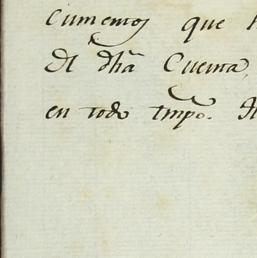 cumentos que
El dha Cuenta,
en todo tmpo.